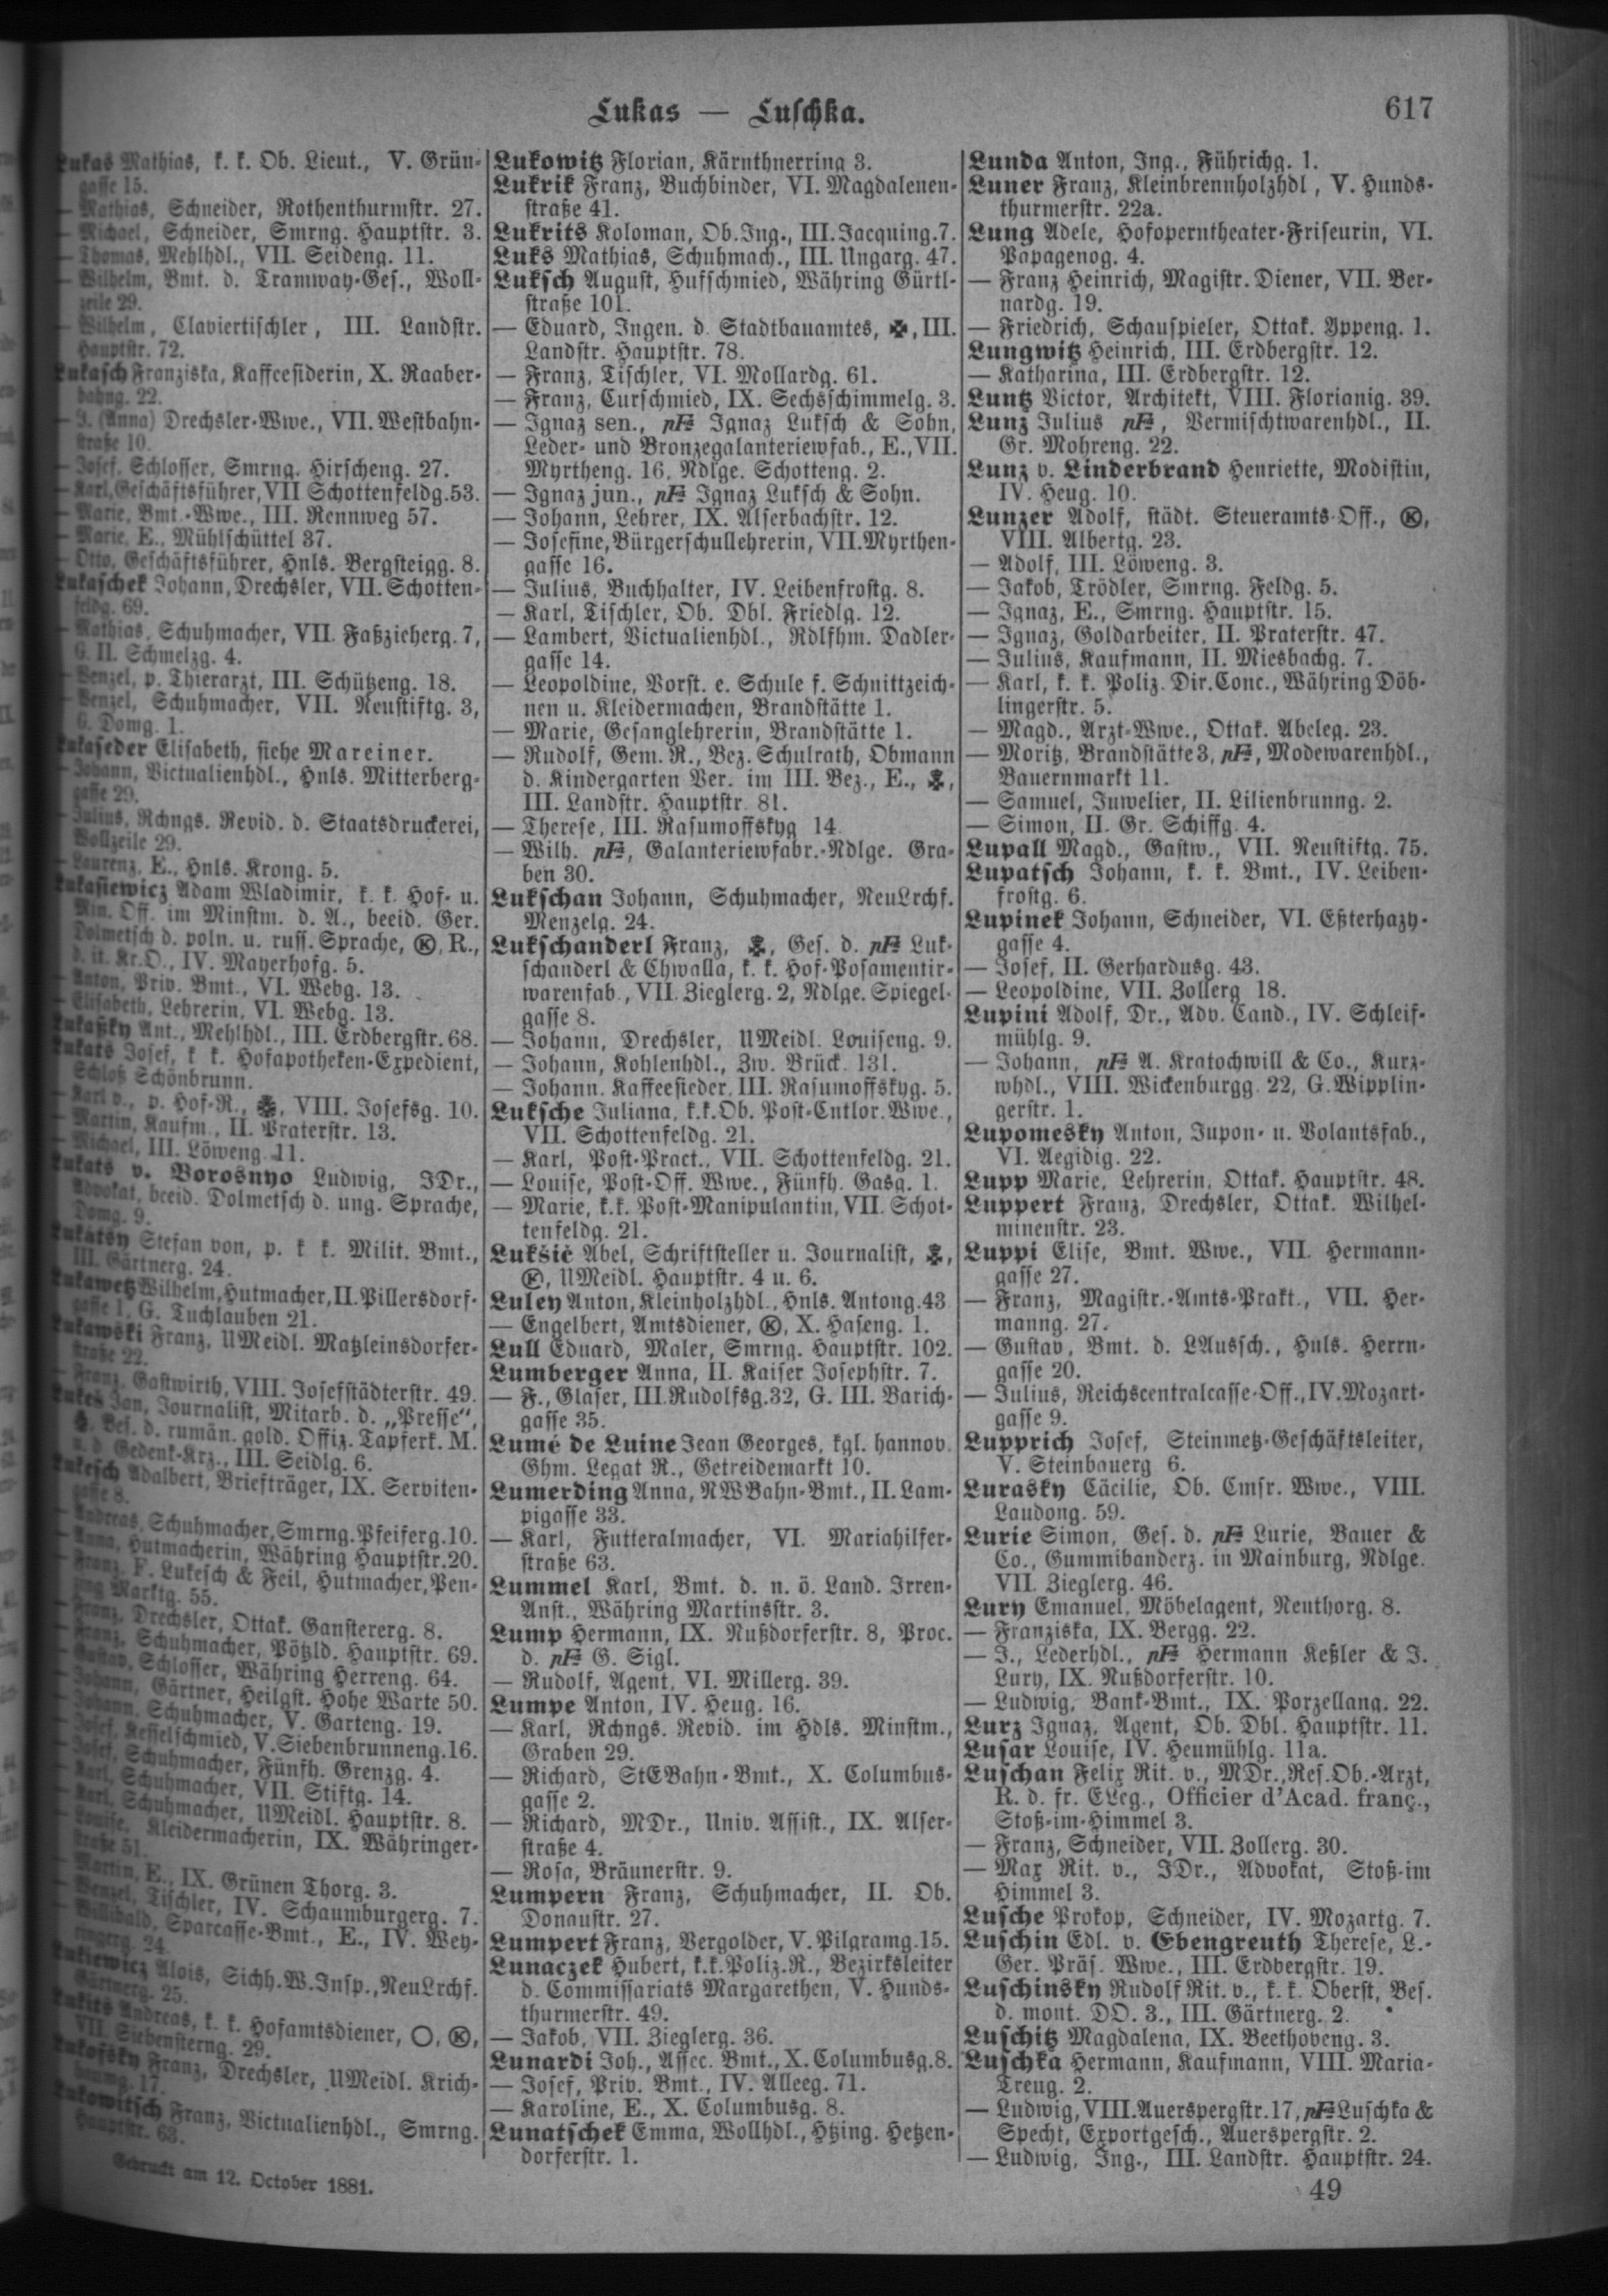 Lukas — Luschka.
617
Lukas Mathias, k. k. Ob. Lieut., V. Grün-
gasse 15.
— Mathias, Schneider, Rothenthurmstr. 27.
— Michael, Schneider, Smrng. Hauptstr. 3.
— Thomas, Mehlhdl., VII. Seideng. 11.
— Wilhelm, Bmt. d. Tramway-Ges., Woll-
zeile 29.
— Wilhelm, Claviertischler, III. Landstr.
Hauptstr. 72.
Lukasch Franziska, Kaffeesiderin, X. Raaber-
bahng. 22.
— J. (Anna) Drechsler-Wwe., VII. Westbahn-
straße 10.
— Josef, Schlosser, Smrng. Hirscheng. 27.
— Karl, Geschäftsführer, VII Schottenfeldg. 53.
— Marie, Bmt.-Wwe., III. Rennweg 57.
— Marie, E., Mühlschüttel 37.
— Otto, Geschäftsführer, Hnls. Bergsteigg. 8.
Lukaschek Johann, Drechsler, VII. Schotten-
feldg. 69.
— Mathias, Schuhmacher, VII. Faßzieherg. 7,
G. II. Schmelzg. 4.
— Wenzel, p. Thierarzt, III. Schützeng. 18.
— Wenzel, Schuhmacher, VII. Neustiftg. 3,
G. Domg. 1.
Lukaseder Elisabeth, siehe Mareiner.
— Johann, Victualienhdl., Hnls. Mitterberg-
gasse 29.
— Julius, Rchngs. Revid. d. Staatsdruckerei,
Wollzeile 29.
— Laurenz, E., Hnls. Krong. 5.
Lukasiewicz Adam Wladimir, k. k. Hof- u.
Min. Off. im Minstm. d. A., beeid. Ger.
Dolmetsch d. poln. u. russ. Sprache, Ⓚ, R.,
d. it. Kr.O., IV. Mayerhofg. 5.
— Anton, Priv. Bmt., VI. Webg. 13.
— Elisabeth, Lehrerin, VI. Webg. 13.
Lukaßky Ant., Mehlhdl., III. Erdbergstr. 68.
Lukats Josef, k k. Hofapotheken-Expedient,
Schloß Schönbrunn.
— Karl v., p. Hof-R., VIII. Josefsg. 10.
— Martin, Kaufm., II. Praterstr. 13.
— Michael, III. Löweng. 11.
Lukats v. Borosnyo Ludwig, JDr.,
Advokat, beeid. Dolmetsch d. ung. Sprache,
Domg. 9.
Lukatsy Stefan von, p. k k. Milit. Bmt.,
III. Gärtnerg. 24.
Lukawetz Wilhelm, Hutmacher, II. Pillersdorf-
gasse 1, G. Tuchlauben 21.
Lukawski Franz, UMeidl. Matzleinsdorfer-
straße 22.
— Franz, Gastwirth, VIII. Josefstädterstr. 49.
Lukes Jan, Journalist, Mitarb. d. „Presse“,
Bes. d. rumän. gold. Offiz. Tapferk. M.
u. d Gedenk-Krz., III. Seidlg. 6.
Lukesch Adalbert, Briefträger, IX. Serviten-
gasse 8.
— Andreas, Schuhmacher, Smrng. Pfeiferg. 10.
— Anna, Hutmacherin, Währing Hauptstr. 20.
— Franz, F. Lukesch & Feil, Hutmacher, Pen-
zing Marktg. 55.
— Franz, Drechsler, Ottak. Ganstererg. 8.
— Franz, Schuhmacher, Pötzld. Hauptstr. 69.
— Gustav, Schlosser, Währing Herreng. 64.
— Johann, Gärtner, Heilgst. Hohe Warte 50.
— Johann, Schuhmacher, V. Garteng. 19.
— Josef, Kesselschmied, V. Siebenbrunneng. 16.
— Josef, Schuhmacher, Fünfh. Grenzg. 4.
— Karl, Schuhmacher, VII. Stiftg. 14.
— Karl, Schuhmacher, UMeidl. Hauptstr. 8.
— Louise, Kleidermacherin, IX. Währinger-
straße 51.
— Martin, E., IX. Grünen Thorg. 3.
— Wenzel, Tischler, IV. Schaumburgerg. 7.
— Willibald, Sparcasse-Bmt., E., IV. Wey-
ringerg. 24.
Lukiewicz Alois, Sichh.W.Insp., NeuLrchf.
Gärtnerg. 25.
Lukits Andreas, k. k. Hofamtsdiener, ◯, Ⓚ,
VII. Siebensterng. 29.
Lukofsky Franz, Drechsler, UMeidl. Krich-
baumg. 17.
Lukowitsch Franz, Victualienhdl., Smrng.
Hauptstr. 63.
Gedruckt am 12. October 1881.
Lukowitz Florian, Kärnthnerring 3.
Lukrik Franz, Buchbinder, VI. Magdalenen-
straße 41.
Lukrits Koloman, Ob.Ing., III. Jacquing. 7.
Luks Mathias, Schuhmach., III. Ungarg. 47.
Luksch August, Hufschmied, Währing Gürtl-
straße 101.
— Eduard, Ingen. d. Stadtbauamtes, ✠, III.
Landstr. Hauptstr. 78.
— Franz, Tischler, VI. Mollardg. 61.
— Franz, Curschmied, IX. Sechsschimmelg. 3.
— Ignaz sen., pF Ignaz Luksch & Sohn,
Leder- und Bronzegalanteriewfab., E., VII.
Myrtheng. 16, Ndlge. Schotteng. 2.
— Ignaz jun., pF Ignaz Luksch & Sohn.
— Johann, Lehrer, IX. Alserbachstr. 12.
— Josefine, Bürgerschullehrerin, VII. Myrthen-
gasse 16.
— Julius, Buchhalter, IV. Leibenfrostg. 8.
— Karl, Tischler, Ob. Dbl. Friedlg. 12.
— Lambert, Victualienhdl., Rdlfhm. Dadler-
gasse 14.
— Leopoldine, Vorst. e. Schule f. Schnittzeich-
nen u. Kleidermachen, Brandstätte 1.
— Marie, Gesanglehrerin, Brandstätte 1.
— Rudolf, Gem. R., Bez. Schulrath, Obmann
d. Kindergarten Ver. im III. Bez., E.,
III. Landstr. Hauptstr. 81.
— Therese, III. Rasumoffskyg 14.
— Wilh. pF, Galanteriewfabr.-Ndlge. Gra-
ben 30.
Lukschan Johann, Schuhmacher, NeuLrchf.
Menzelg. 24.
Lukschanderl Franz, Ges. d. pF Luk-
schanderl & Chwalla, k. k. Hof-Posamentir-
warenfab., VII. Zieglerg. 2, Ndlge. Spiegel-
gasse 8.
— Johann, Drechsler, UMeidl. Louiseng. 9.
— Johann, Kohlenhdl., Zw. Brück. 131.
— Johann, Kaffeesieder, III. Rasumoffskyg. 5.
Luksche Juliana, k.k.Ob. Post-Cntlor. Wwe.,
VII. Schottenfeldg. 21.
— Karl, Post-Pract., VII. Schottenfeldg. 21.
— Louise, Post-Off. Wwe., Fünfh. Gasg. 1.
— Marie, k.k. Post-Manipulantin, VII. Schot-
tenfeldg. 21.
Lukšić Abel, Schriftsteller u. Journalist,
Ⓚ, UMeidl. Hauptstr. 4 u. 6.
Luley Anton, Kleinholzhdl., Hnls. Antong. 43.
— Engelbert, Amtsdiener, Ⓚ, X. Haseng. 1.
Lull Eduard, Maler, Smrng. Hauptstr. 102.
Lumberger Anna, II. Kaiser Josephstr. 7.
— F., Glaser, III. Rudolfsg. 32, G. III. Barich-
gasse 35.
Lumé de Luine Jean Georges, kgl. hannov.
Ghm. Legat R., Getreidemarkt 10.
Lumerding Anna, NWBahn-Bmt., II. Lam-
pigasse 33.
— Karl, Futteralmacher, VI. Mariahilfer-
straße 63.
Lummel Karl, Bmt. d. n. ö. Land. Irren-
Anst., Währing Martinsstr. 3.
Lump Hermann, IX. Nußdorferstr. 8, Proc.
d. pF G. Sigl.
— Rudolf, Agent, VI. Millerg. 39.
Lumpe Anton, IV. Heug. 16.
— Karl, Rchngs. Revid. im Hdls. Minstm.,
Graben 29.
— Richard, StEBahn-Bmt., X. Columbus-
gasse 2.
— Richard, MDr., Univ. Assist., IX. Alser-
straße 4.
— Rosa, Bräunerstr. 9.
Lumpern Franz, Schuhmacher, II. Ob.
Donaustr. 27.
Lumpert Franz, Vergolder, V. Pilgramg. 15.
Lunaczek Hubert, k.k.Poliz.R., Bezirksleiter
d. Commissariats Margarethen, V. Hunds-
thurmerstr. 49.
— Jakob, VII. Zieglerg. 36.
Lunardi Joh., Assec. Bmt., X. Columbusg. 8.
— Josef, Priv. Bmt., IV. Alleeg. 71.
— Karoline, E., X. Columbusg. 8.
Lunatschek Emma, Wollhdl., Htzing. Hetzen-
dorferstr. 1.
Lunda Anton, Ing., Führichg. 1.
Luner Franz, Kleinbrennholzhdl, V. Hunds-
thurmerstr. 22a.
Lung Adele, Hofoperntheater-Friseurin, VI.
Papagenog. 4.
— Franz Heinrich, Magistr. Diener, VII. Ber-
nardg. 19.
— Friedrich, Schauspieler, Ottak. Yppeng. 1.
Lungwitz Heinrich, III. Erdbergstr. 12.
— Katharina, III. Erdbergstr. 12.
Luntz Victor, Architekt, VIII. Florianig. 39.
Lunz Julius pF, Vermischtwarenhdl., II.
Gr. Mohreng. 22.
Lunz v. Linderbrand Henriette, Modistin,
IV. Heug. 10.
Lunzer Adolf, städt. Steueramts-Off., Ⓚ,
VIII. Albertg. 23.
— Adolf, III. Löweng. 3.
— Jakob, Trödler, Smrng. Feldg. 5.
— Ignaz, E., Smrng. Hauptstr. 15.
— Ignaz, Goldarbeiter, II. Praterstr. 47.
— Julius, Kaufmann, II. Miesbachg. 7.
— Karl, k. k. Poliz. Dir.Conc., Währing Döb-
lingerstr. 5.
— Magd., Arzt-Wwe., Ottak. Abeleg. 23.
— Moritz, Brandstätte 3, pF, Modewarenhdl.,
Bauernmarkt 11.
— Samuel, Juwelier, II. Lilienbrunng. 2.
— Simon, II. Gr. Schiffg. 4.
Lupall Magd., Gastw., VII. Neustiftg. 75.
Lupatsch Johann, k. k. Bmt., IV. Leiben-
frostg. 6.
Lupinek Johann, Schneider, VI. Eßterhazy-
gasse 4.
— Josef, II. Gerhardusg. 43.
— Leopoldine, VII. Zollerg 18.
Lupini Adolf, Dr., Adv. Cand., IV. Schleif-
mühlg. 9.
— Johann, pF A. Kratochwill & Co., Kurz-
whdl., VIII. Wickenburgg. 22, G. Wipplin-
gerstr. 1.
Lupomesky Anton, Jupon- u. Volantsfab.,
VI. Aegidig. 22.
Lupp Marie, Lehrerin, Ottak. Hauptstr. 48.
Luppert Franz, Drechsler, Ottak. Wilhel-
minenstr. 23.
Luppi Elise, Bmt. Wwe., VII. Hermann-
gasse 27.
— Franz, Magistr.-Amts-Prakt., VII. Her-
manng. 27.
— Gustav, Bmt. d. LAussch., Hnls. Herrn-
gasse 20.
— Julius, Reichscentralcasse-Off., IV. Mozart-
gasse 9.
Lupprich Josef, Steinmetz-Geschäftsleiter,
V. Steinbauerg 6.
Lurasky Cäcilie, Ob. Cmsr. Wwe., VIII.
Laudong. 59.
Lurie Simon, Ges. d. pF Lurie, Bauer &
Co., Gummibanderz. in Mainburg, Ndlge.
VII. Zieglerg. 46.
Lury Emanuel, Möbelagent, Neuthorg. 8.
— Franziska, IX. Bergg. 22.
— J., Lederhdl., pF Hermann Keßler & J.
Lury, IX. Nußdorferstr. 10.
— Ludwig, Bank-Bmt., IX. Porzellang. 22.
Lurz Ignaz, Agent, Ob. Dbl. Hauptstr. 11.
Lusar Louise, IV. Heumühlg. 11a.
Luschan Felix Rit. v., MDr., Res.Ob.-Arzt,
R. d. fr. ELeg., Officier d'Acad. franç.,
Stoß-im-Himmel 3.
— Franz, Schneider, VII. Zollerg. 30.
— Max Rit. v., JDr., Advokat, Stoß-im
Himmel 3.
Lusche Prokop, Schneider, IV. Mozartg. 7.
Luschin Edl. v. Ebengreuth Therese, L.-
Ger. Präs. Wwe., III. Erdbergstr. 19.
Luschinsky Rudolf Rit. v., k. k. Oberst, Bes.
d. mont. DO. 3., III. Gärtnerg. 2.
Luschitz Magdalena, IX. Beethoveng. 3.
Luschka Hermann, Kaufmann, VIII. Maria-
Treug. 2.
— Ludwig, VIII. Auerspergstr. 17, pF Luschka &
Specht, Exportgesch., Auerspergstr. 2.
— Ludwig, Ing., III. Landstr. Hauptstr. 24.
49